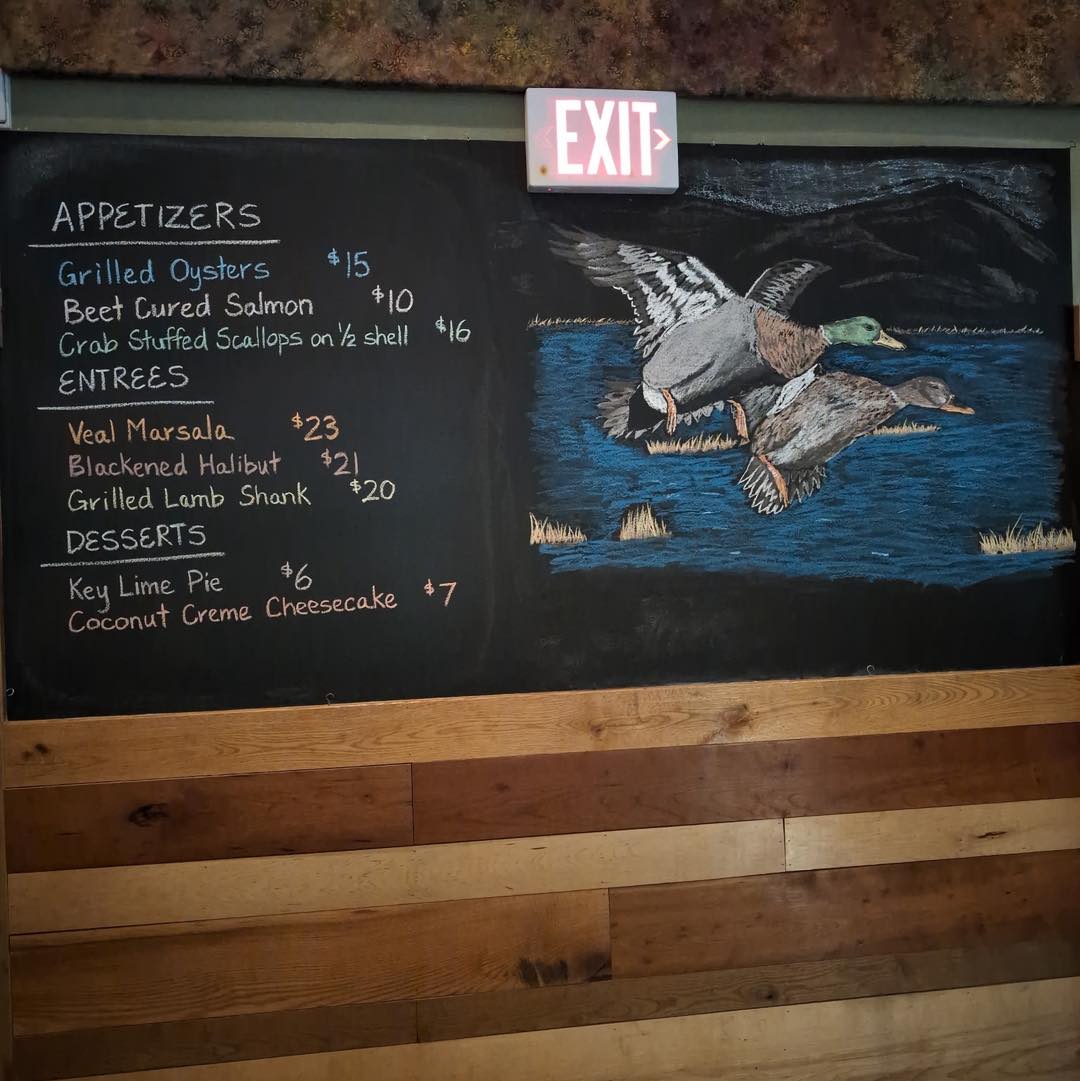 EXIT
APPETIZERS
Grilled Oysters $15
Beet Cured Salmon $10
Crab Stuffed Scallops on ½ shell $16
ENTREES
Veal Marsala $23
Blackened Halibut $21
Grilled Lamb Shank $20
DESSERTS
Key Lime Pie $6
Coconut Creme Cheesecake $7